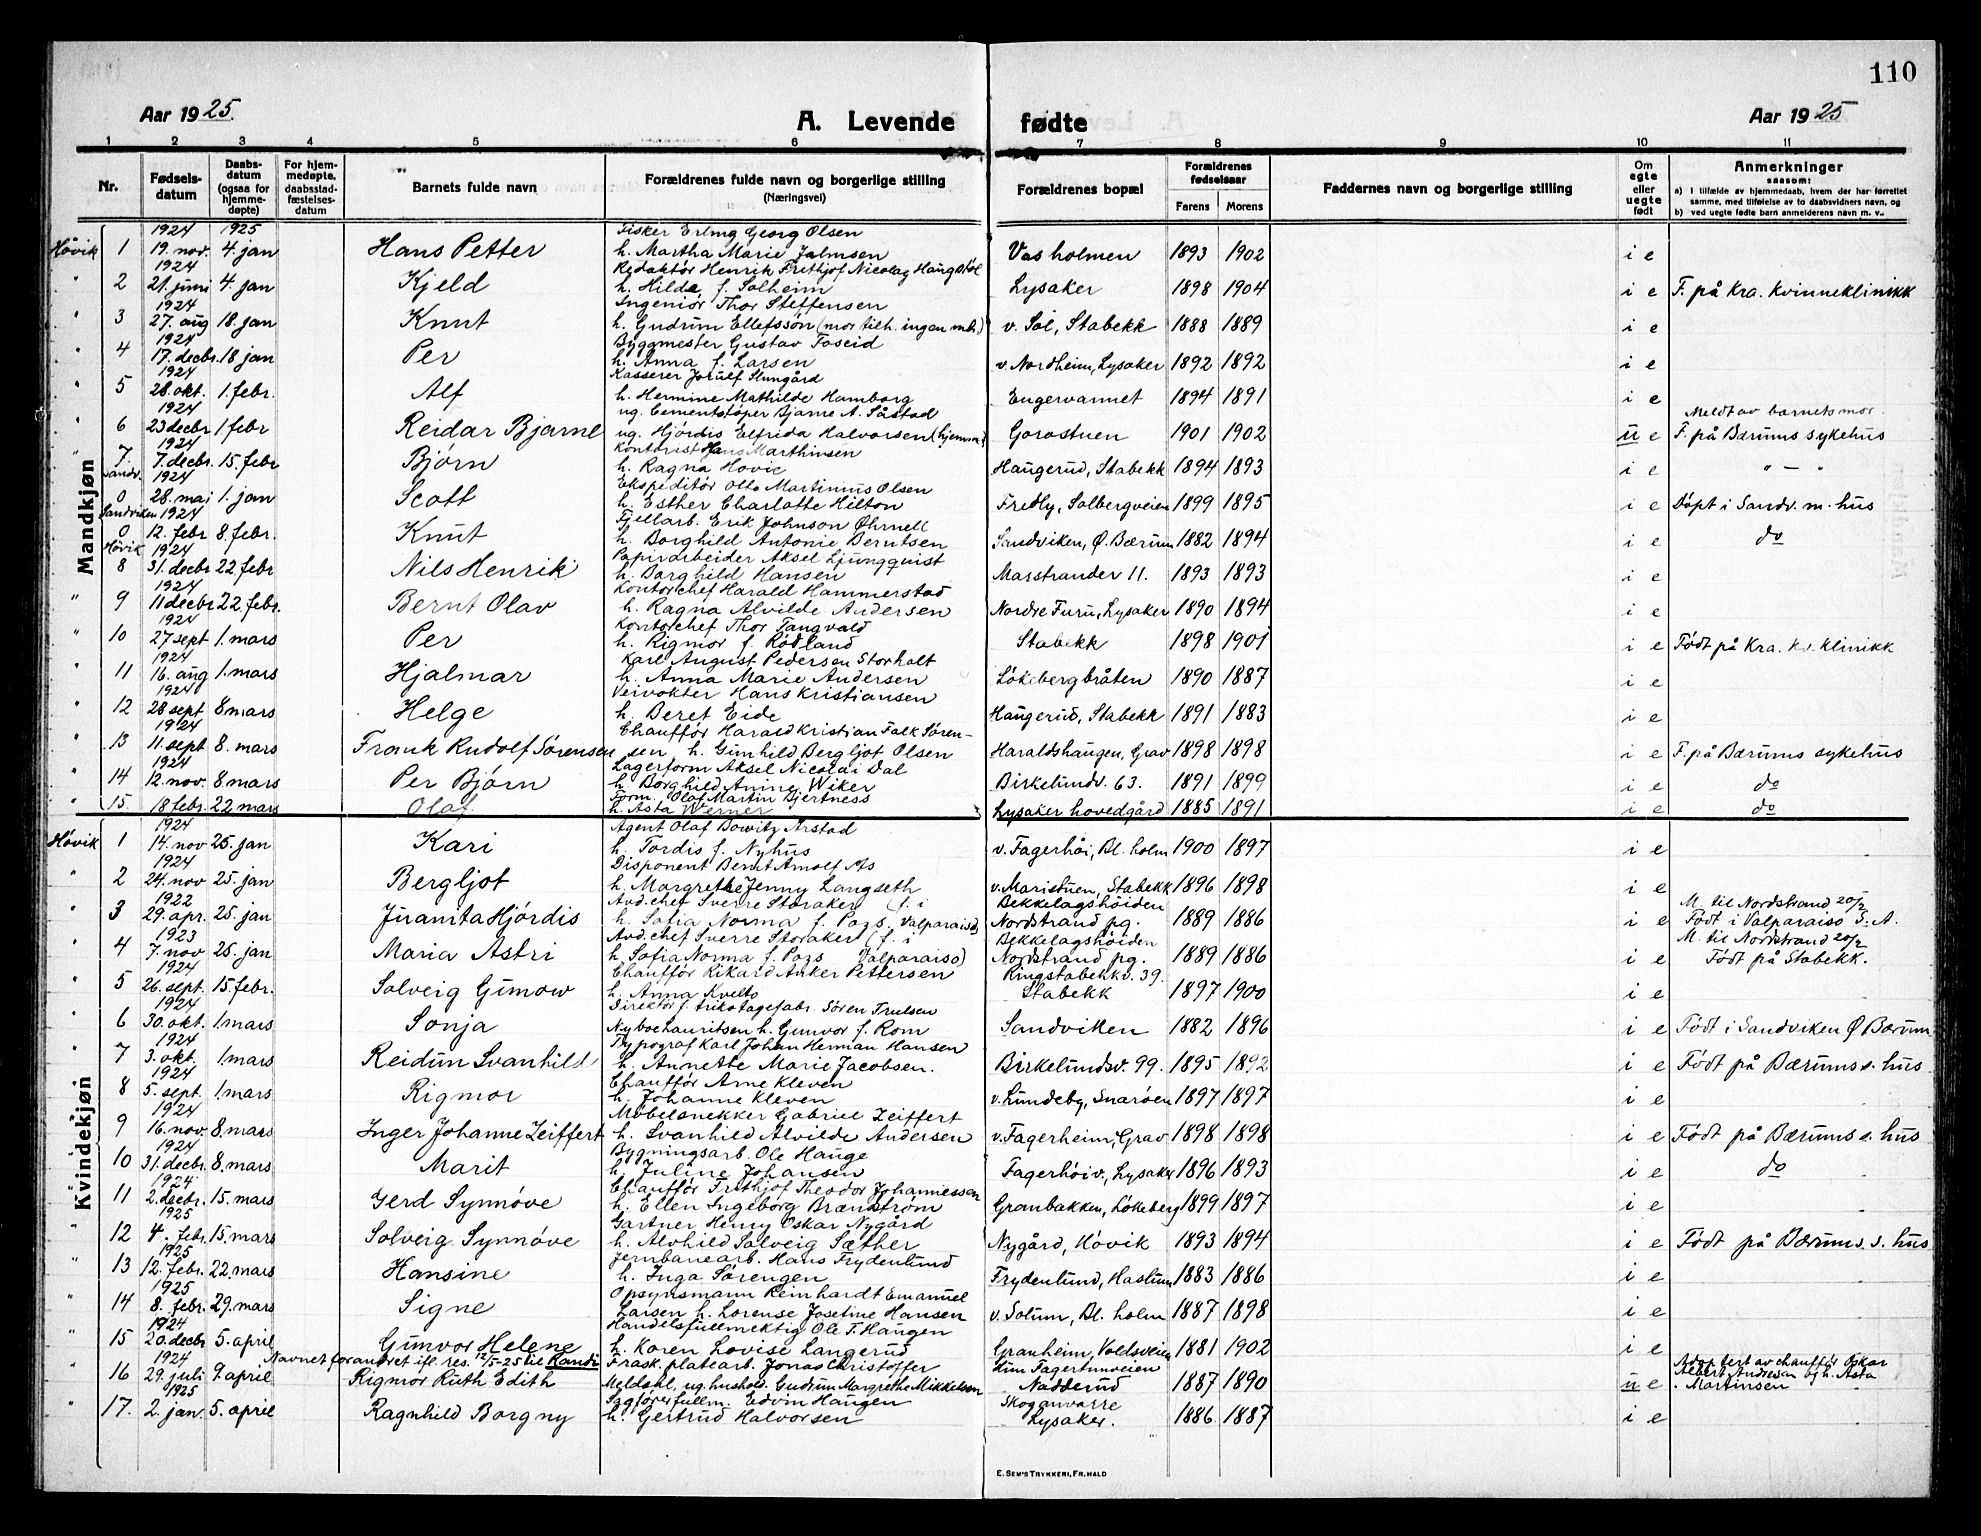 110
Aar 1925.
A. Levende
fødte
Aar 1925
1 2 3 4 5 6 7 8 9 10 11
Nr. Fødsels-datum Daabs-datum (ogsaa for hjemme-døpte) For hjem-medøpte, daabsstad-fæstelses-datum Barnets fulde navn Forældrenes fulde navn og borgerlige stilling (Næringsvei) Forældrenes bopæl Forældrenes fødselsaar Farens Morens Faddernes navn og borgerlige stilling Om egte eller uegte født Anmerkninger saasom:
a) i tilfælde av hjemmedaab, hvem der har forrettet samme, med tilføielse av to daabsvidners navn, og
b) ved uegte fødte barn anmelderens navn m. v..
Mandkjøn
1924 1925 Fisker Erling Georg Olsen
Høvik 1 19. nov. 4. jan Hans Petter h. Martha Marie Jalmsen Vas holmen 1893 1902 i e
1924 Redaktør Henrik Frithjof Nicolay Haugstøl
" 2 21. juni 4. jan Kjeld h. Hilda f. Solheim Lysaker 1898 1904 i e F. på Kra. Kvinneklinikk
1924 Ingeniør Thor Steffensen
" 3 27. aug 18. jan Knut h. Gudrun Ellefssøn (mor tilh. ingen mh.) v. Sol, Stabekk 1888 1889 i e
1924 Byggmester Gustav Foseid
" 4 17. decbr. 18 jan Per h. Anna f. Larsen v. Nordheim, Lysaker 1892 1892 i e
1924 Kasserer
" 5 28. okt. 1. febr. Alf h. Hermine Mathilde Hamborg Engervannet 1894 1891 i e
1924 ug. Cementstøper Bjarne A. Såstad Meldt av barnets mor.
" 6 23 decbr 1 febr Reidar Bjarne ug. Hjørdis Elfrida Halvorsen (hjemme) 1901 1902 u e F. på Bærums sykehus
1924 Kontorist Hans Marthinsen
" 7. 7. decbr. 15. febr Bjørn h. Ragna Hovic Haugerud, Stabekk 1894 1893 i e " — "
Sandv. 1924 Ekspeditør Otto Martinius Olsen
0 28. mai 1. jan Scott h. Esther Charlotte Hilton Fredly, Solbergveien 1899 1895 i e Døpt i Sandv. m. hus
Sandviken 1924 Fjellarb. Erik Johnson Øhrnell
0 12. febr 8. febr. Knut h. Borghild Antonie Berntsen Sandviken, Ø. Bærum 1882 1894 i e do
Høvik 1924 Papirarbeider Aksel Ljungquist
8 31. decbr 22. febr Nils Henrik h. Borghild Hansen Marstrander 11. 1893 1893 i e
1924 Kontorchef Harald Hammerstad
" 9 11 decbr 22 febr. Bernt Olav h. Ragna Alvilde Andersen Nordre Furu, Lysaker 1890 1894 i e
1924 Kontorchef Thor Tangvald
" 10 27 sept 1. mars Per h. Rigmor f. Rødland Stabekk 1898 1901 i e Født på Kra. kv. klinikk
1924 Karl August Pedersen Storholt
" 11 16. aug 1. mars Hjalmar h. Anna Marie Andersen Løkebergbråten 1890 1887 i e
1924 Veivokter Hans Kristiansen
" 12 28 sept 8 mars Helge h. Beret Eide Haugerud, Stabekk 1891 1883 i e
1924 Chauffør Harald Kristian Falk Søren-
" 13 11. sept 8. mars Frank Rudolf Sørensen sen, h. Gunhild Bergljot Olsen Haraldshaugen, Grav 1898 1898 i e F. på Bærums sykehus
1924 Lagerform Aksel Nicolai Dal
" 14 12. nov. 8 mars Per Bjørn h. Borghild Anine Wiker Birkelundv. 63. 1891 1899 i e do
Form. Olaf Martin Bjertness
" 15. 18 febr. 22 mars Olaf h. Asta Werner Lysaker hovedgård 1885 1891 i e do
Kvindekjøn
1924 Agent Olaf Bowitz Årstad
Høvik 1 14. nov 25. jan Kari h. Tordis f. Nyhus v. Fagerhøi, Bl. holm 1900 1897 i e
1924 Disponent Bernt Arnolf As
" 2 24. nov 25. jan Bergljot h. Margrethe Jenny Langseth v. Maristuen, Stabekk 1896 1898 i e
1922 Avd. chef Sverre Storaker (f. i Bekkelagshøiden M. til Nordstrand 20/2
" 3 29. apr. 25. jan Juanita Hjørdis h. Sofia Norma f. Pozs, Valparaiso) Nordstrand pg. 1889 1886 i e Født i Valparaiso S. A.
1923 Avd. chef Sverre Storaker (f. i Bekkelagshøiden M. til Nordstrand 20/2
" 4 7. nov 25. jan Maria Astri h. Sofia Norma f. Pozs Valparaiso) Nordstrand pg. 1889 1886 i e Født på Stabekk.
1924 Chauffør Rikard Anker Pettersen Ringstabekkv. 39.
" 5 26. sept. 15. febr. Solveig Gunow h. Anna Kvelto Stabekk 1897 1900 i e
1924 Direktør f. trikotagefabr. Søren Trulsen
" 6 30. okt. 1. mars Sonja Nyboe Lauritsen h. Gunvor f. Rom Sandviken 1882 1896 i e Født i Sandviken Ø. Bærum
1924 Typograf Karl Johan Herman Hansen
" 7 3. okt. 1. mars Reidun Svanhild h. Annette Marie Jacobsen. Birkelundsv. 99. 1895 1892 i e Født på Bærums s. hus
1924 Chauffør Arne Kleven
" 8 5. sept. 1. mars Rigmor h. Johanne Kleven v. Lundeby, Snarøen 1897 1897 i e
1924 Møbelsnekker Gabriel Zeiffert
" 9 16. nov. 8. mars Inger Johanne Zeiffert h. Svanhild Alvilde Andersen v. Fagerheim, Grav 1898 1898 i e Født på Bærums s. hus
1924 Bygningsarb. Ole Hauge
" 10 31. decbr. 8. mars Marit h. Juline Johansen Fagerhøiv., Lysaker 1896 1893 i e do
1924 Chauffør Frithjof Theodor Johannesson
" 11 2. decbr. 15. mars Gerd Synnøve h. Ellen Ingeborg Brændstrøm Granbakken, Løkeberg 1899 1897 i e
1925 Gartner Henry Oskar Nygård
" 12 4. febr. 15. mars Solveig Synnøve h. Alvhild Solveig Sæther Nygård, Høvik 1893 1894 i e Født på Bærums. s. hus
1925 Jernbanearb. Hans Frydenlund
" 13 12. febr. 22. mars Hansine h. Inga Sørengen Frydenlund, Haslum 1883 1886 i e
1925 Opsynsmann Reinhardt Emanuel
" 14 8. febr. 29. mars Signe Larsen h. Lorense Josefine Hansen v. Solum, Bl. holm 1887 1898 i e
1924 Handelsfullmektig Ole T. Haugen
" 15 20. decbr 5. april Gunvor Helene h. Karen Lovise Langerud Granheim, Voldsveien 1881 1902 i e
1924 Navnet forandret ifl. res. 12/5-25 til Randi Frask. platearb. Jonas Christoffer Fagertunveien Adopbert av chauffør Oskar
" 16 29. juli 9. april Rigmor Ruth Edith Meldahl, ug. hushold. Gudrun Margrethe Mikkelsen Nadderud 1887 1890 u e Albert Andresen og h. Asta Martinsen
1925 Sagførerfullm. Edvin Haugen Skoganvarre
" 17. 2. jan. 5. april Ragnhild Borgny h. Gertrud Halvorsen Lysaker. 1886 1887 i e
E. Sem's Trykkeri, Fr.hald